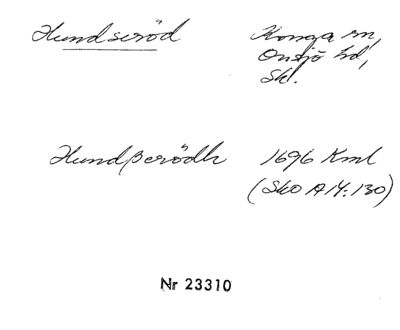 Hundseröd Konga sn,
Onsjö hd,
Sk.
Hundßerödh 1696 Kml
(Sk0 A 14:130)
Nr 23310